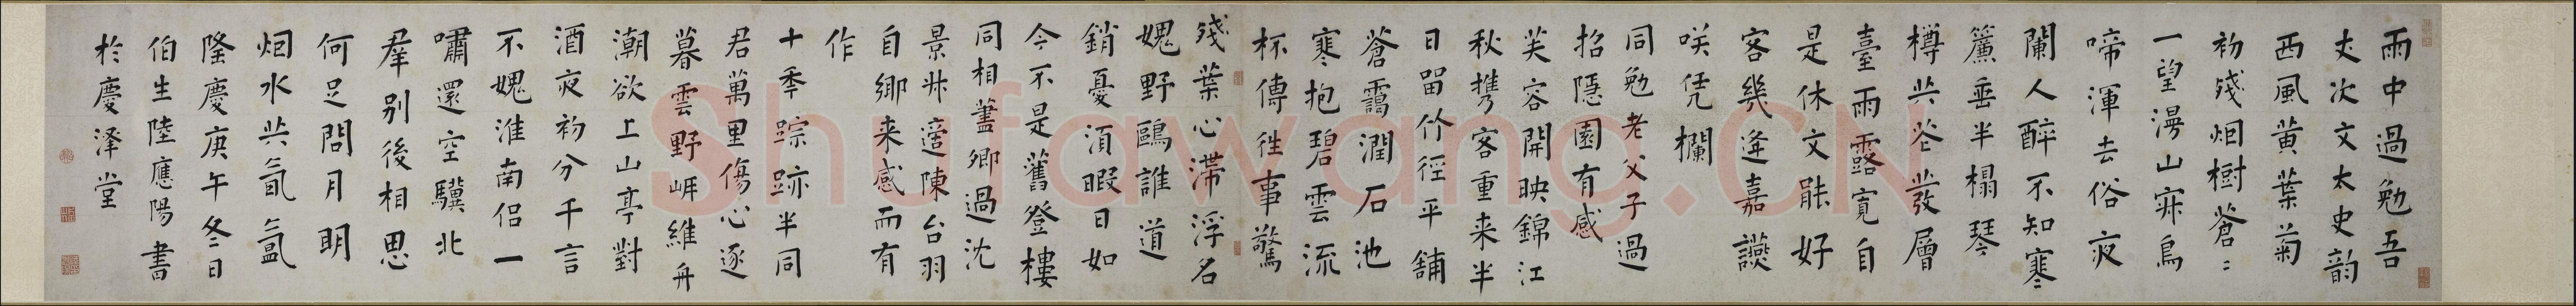 雨中過勉吾
丈次文太史韵
西風黄葉菊
初殘烟樹蒼〻
一望漫山寐鳥
啼渾去俗夜
闌人醉不知寒
簾垂半榻琴
樽共花發層
臺雨露寬自
是休文能好
客幾逢嘉讌
咲凭欄
同勉老父子過
招隱園有感
芙容開映錦江
秋携客重来半
日留竹徑平鋪
蒼靄潤石池
寒抱碧雲流
杯傳徃事驚
殘葉心滯浮名
媿野鷗誰道
銷憂須暇日如
今不是舊登樓
同相藎卿過沈
景州遊陳台羽
自鄉来感而有
作
十年踪跡半同
君萬里傷心逐
暮雲野岍維舟
潮欲上山亭對
酒夜初分千言
不媿淮南侣一
嘯還空驥北
羣别後相思
何足問月明
烟水共氤氲
隆慶庚午冬日
伯生陸應陽書
於慶澤堂
Shufawang.CN